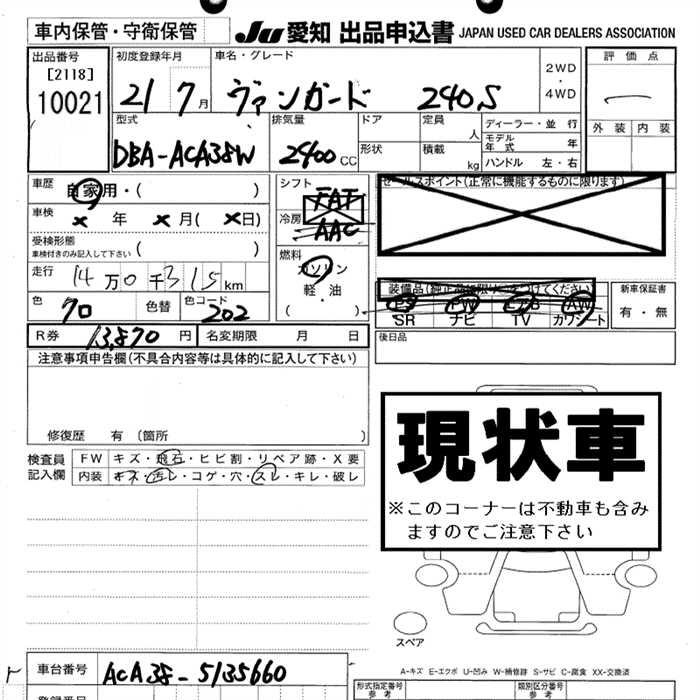 車内保管・守衛保管 JU 愛知 出品申込書 JAPAN USED CAR DEALERS ASSOCIATION
出品番号
[2118]
10021
初度登録年月
21 7月
車名・グレード
ヴァンガード 240S
2WD
・
4WD
評価点
外装 内装
型式
DBA-ACA38W
排気量
2400 CC
ドア
形状
定員 人
積載 kg
ディーラー・並行
モデル年式 年
ハンドル 左・右
車歴 自家用・( )
車検 × 年 × 月( ×日)
受検形態
車検付きのみ記入して下さい ( )
走行 14万0千315km
色 クロ 色替 色コード 202
シフト FAT
冷房 AAC
燃料
ガソリン
軽・油
( )
セールスポイント(正常に機能するものに限ります)
装備品(純正品に限り○をつけてください)
PS PW AB AW
SR ナビ TV カワシート
新車保証書
有・無
R券 13,870 円 名変期限 月 日
後日品
注意事項申告欄(不具合内容等は具体的に記入して下さい)
修復歴 有 〔箇所 〕
検査員
記入欄
FW キズ・飛石・ヒビ割・リペア跡・X要
内装 キズ・汚レ・コゲ・穴・スレ・キレ・破レ
現状車
※このコーナーは不動車も含み
ますのでご注意下さい
スペア
A-キズ E-エクボ U-凹み W-補修跡 S-サビ C-腐食 XX-交換済
車台番号 ACA38-5135660
登録番号
型式指定番号
参考
類別区分番号
参考